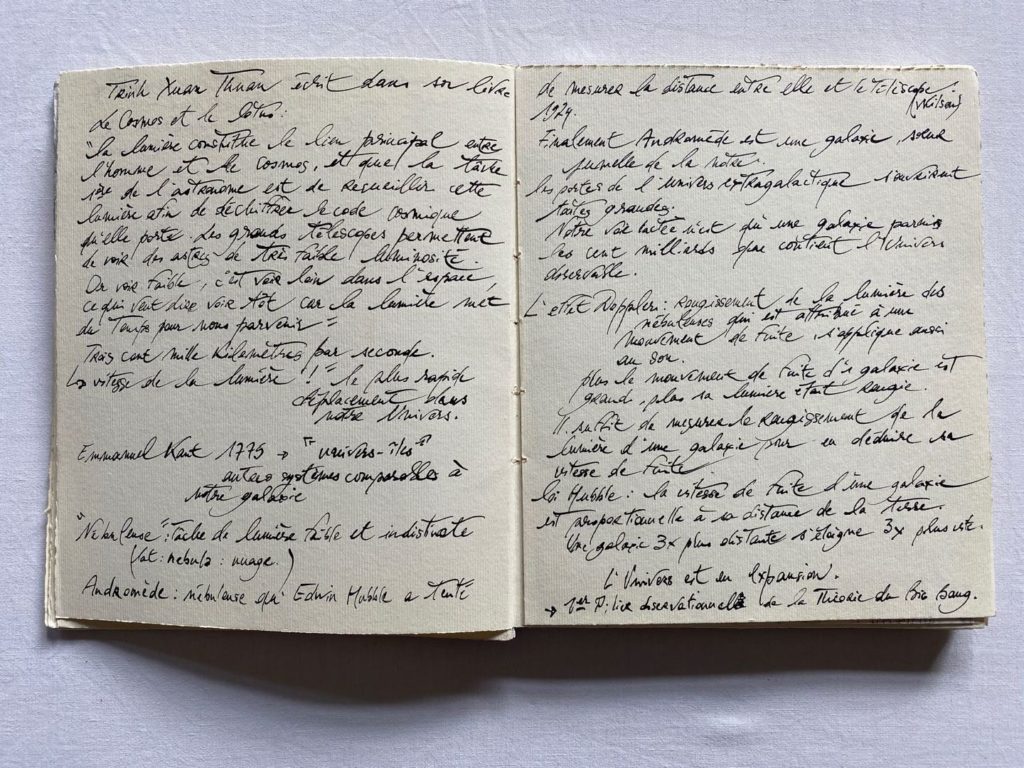 Trinh Xuan Thuan écrit dans son livre
Le Cosmos et le lotus :
"la lumière constitue le lien principal entre
l'homme et le cosmos, et que la tâche
1re de l'astronome est de recueillir cette
lumière afin de déchiffrer le code cosmique
qu'elle porte. Les grands télescopes permettent
de voir des astres de très faible luminosité.
Or voir faible, c'est voir loin dans l'espace,
ce qui veut dire voir tôt car la lumière met
du temps pour nous parvenir"
Trois cent mille kilomètres par seconde.
↳ vitesse de la lumière !" le plus rapide
déplacement dans
notre Univers.
Emmanuel Kant 1775 → "univers-îles"
autres systèmes comparables à
notre galaxie
"Nébuleuse" : tâche de lumière faible et indistincte
(lat : nebula : nuage.)
Andromède : nébuleuse qu' Edwin Hubble a tenté
de mesurer la distance entre elle et le téléscope.
(Wilson)
1924.
Finalement Andromède est une galaxie, soeur
jumelle de la nôtre.
les portes de l'univers extragalactique s'ouvrirent
toutes grandes.
Notre voie lactée n'est qu'une galaxie parmis
les cent milliards que contient l'Univers
observable.
L'effet Doppler : rougissement de la lumière des
nébuleuses qui est attribué à un
mouvement de fuite, s'applique aussi
au son.
plus le mouvement de fuite d'1 galaxie est
grand, plus sa lumière était rougie.
Il suffit de mesurer le rougissement de la
lumière d'une galaxie pour en déduire sa
vitesse de fuite
loi Hubble : la vitesse de fuite d'une galaxie
est proportionnelle à sa distance de la terre.
Une galaxie 3x plus distante s'éloigne 3x plus vite.
L'Univers est en expansion.
→ 1er Pilier observationnel de la Théorie du Big Bang.